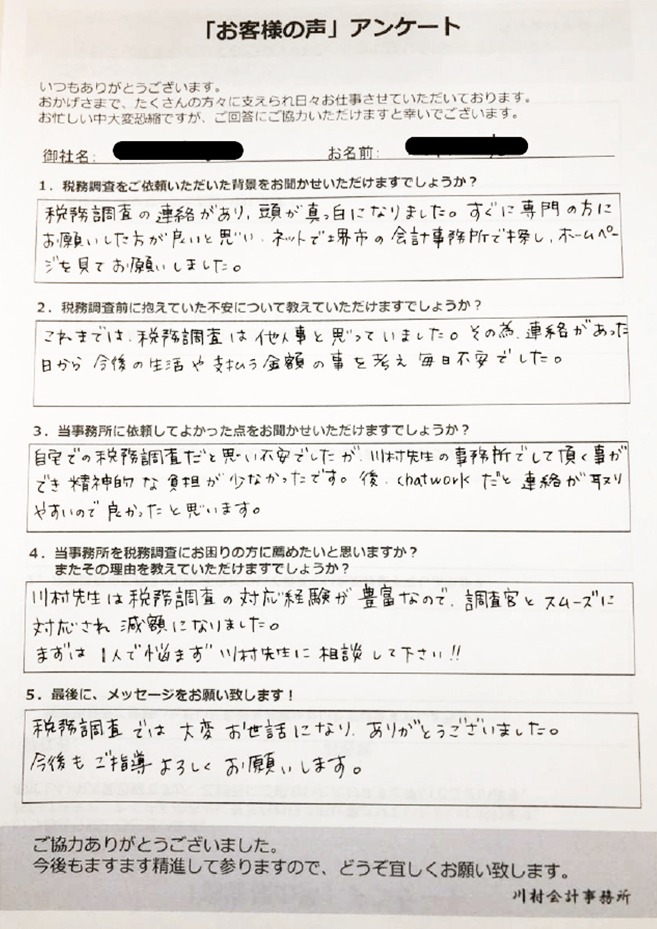 「お客様の声」アンケート
いつもありがとうございます。
おかげさまで、たくさんの方々に支えられ日々お仕事させていただいております。
お忙しい中大変恐縮ですが、ご回答にご協力いただけますと幸いでございます。
御社名： お名前：
1．税務調査をご依頼いただいた背景をお聞かせいただけますでしょうか？
税務調査の連絡があり、頭が真っ白になりました。すぐに専門の方に
お願いした方が良いと思い、ネットで堺市の会計事務所で探し、ホームペー
ジを見てお願いしました。
2．税務調査前に抱えていた不安について教えていただけますでしょうか？
これまでは、税務調査は他人事と思っていました。その為、連絡があった
日から今後の生活や支払う金額の事を考え毎日不安でした。
3．当事務所に依頼してよかった点をお聞かせいただけますでしょうか？
自宅での税務調査だと思い不安でしたが、川村先生の事務所でして頂く事が
でき精神的な負担が少なかったです。後、chatworkだと連絡が取り
やすいので良かったと思います。
4．当事務所を税務調査にお困りの方に薦めたいと思いますか？
またその理由を教えていただけますでしょうか？
川村先生は税務調査の対応経験が豊富なので、調査官とスムーズに
対応され減額になりました。
まずは1人で悩まず川村先生に相談して下さい!!
5．最後に、メッセージをお願い致します！
税務調査では大変お世話になり、ありがとうございました。
今後もご指導よろしくお願いします。
ご協力ありがとうございました。
今後もますます精進して参りますので、どうぞ宜しくお願い致します。
川村会計事務所